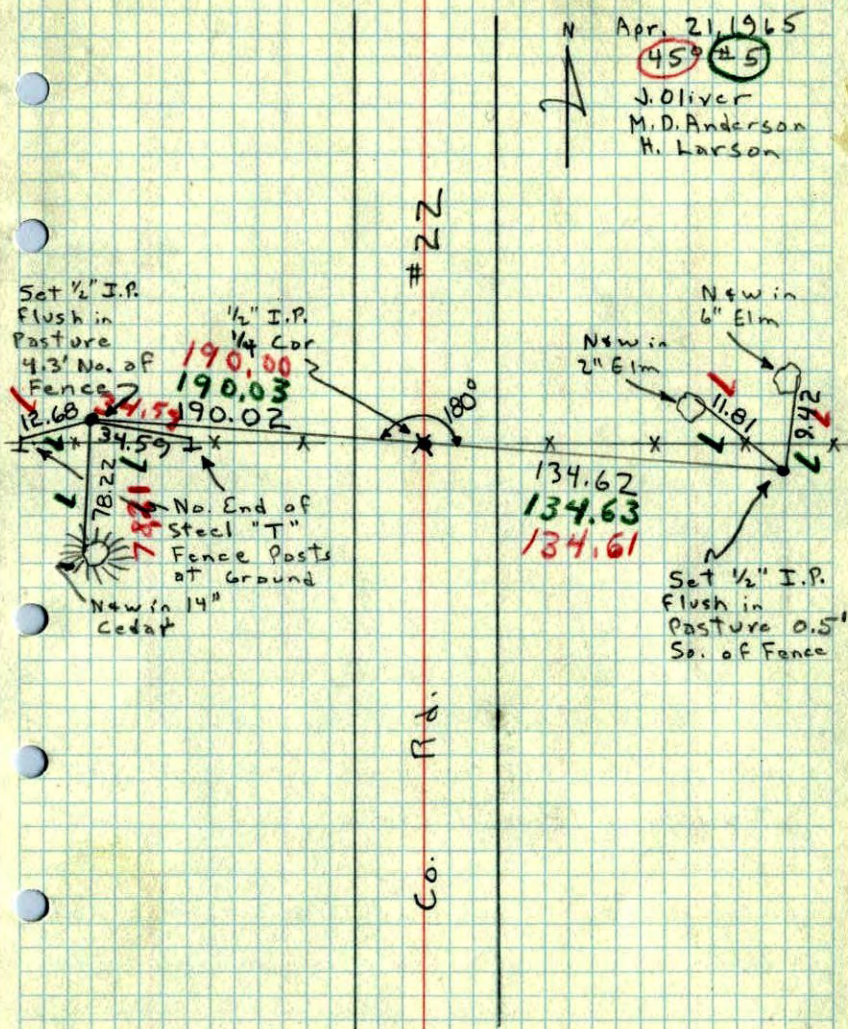 N
Apr. 21, 1965
45° #5
J. Oliver
M.D. Anderson
H. Larson
#22
Set 1/2" I.P.
Flush in
Pasture
4.3' No. of
Fence
1/2" I.P.
1/4 Cor
190.00
190.03
190.02
12.68
34.59
34.59
78.22
78.21
180°
No. End of
Steel "T"
Fence Posts
at Ground
N&W in 14"
Cedar
N&W in
2" Elm
N&W in
6" Elm
11.81
8.42
134.62
134.63
134.61
Set 1/2" I.P.
Flush in
Pasture 0.5'
So. of Fence
Co. Rd.